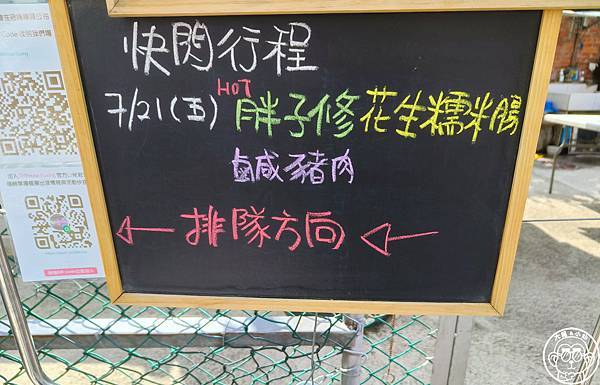 快閃行程
7/21(五) HOT 胖子修 花生糯米腸
鹹豬肉
← 排隊方向 ←